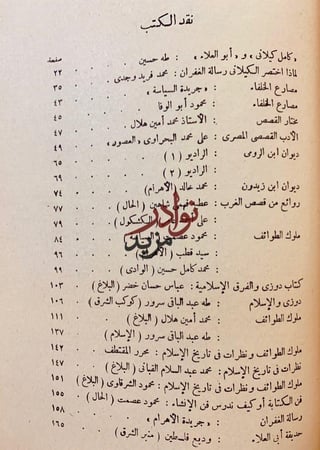 نقد الكتب
« كامل كيلانى » و « أبو العلاء » : طه حسين صفحة
لماذا اختصر الكيلانى رسالة الغفران : محمد فريد وجدى ٢٢
مصارع الخلفاء : « جريدة السياسة » ٣٥
مصارع الخلفاء : محمود أبو الوفا ٤٣
مختار القصص : الأستاذ محمد أمين هلال ٤٥
الأدب القصصى المصرى : على محمد البحراوى « العصور » ٤٧
ديوان ابن الرومى : الراديو ( ١ ) ٤٩
الراديو ( ٢ ) ٦٥
ديوان ابن زيدون : محمد خالد ( الأهرام ) ٦٩
روائع من قصص الغرب : ( الحال ) ٧٤
على ٧٧
ملوك الطوائف : محمود ٧٩
: سيد قطب ( ٨٤
: محمد كامل حسين ( الوادى ) ٩٦
٩٩
كتاب دوزى والفرق الإسلامية : عباس حسان خضر ( البلاغ ) ١٠٣
دوزى والإسلام : طه عبد الباقى سرور ( كوكب الشرق ) ١٠٦
ملوك الطوائف : محمد أمين هلال ( البلاغ ) ١١١
: طه عبد الباقى سرور ( الإسلام ) ١٣٧
ملوك الطوائف ونظرات فى تاريخ الإسلام : محرر المقتطف ١٤٢
نظرات فى تاريخ الإسلام : محمد عبد السلام القبانى ( البلاغ ) ١٤٧
ملوك الطوائف ونظرات فى تاريخ الإسلام : محمود الشرقاوى ( البلاغ ) ١٥١
فن الكتابة أو كيف ندرس فن الإنشاء : محمود عصمت ( الحال ) ١٥٥
رسالة الغفران : « جريدة الأهرام » ١٥٨
حديقة أبى العلاء : وديع فلسطين ( منبر الشرق ) ١٦٥
نوادر
مزيد